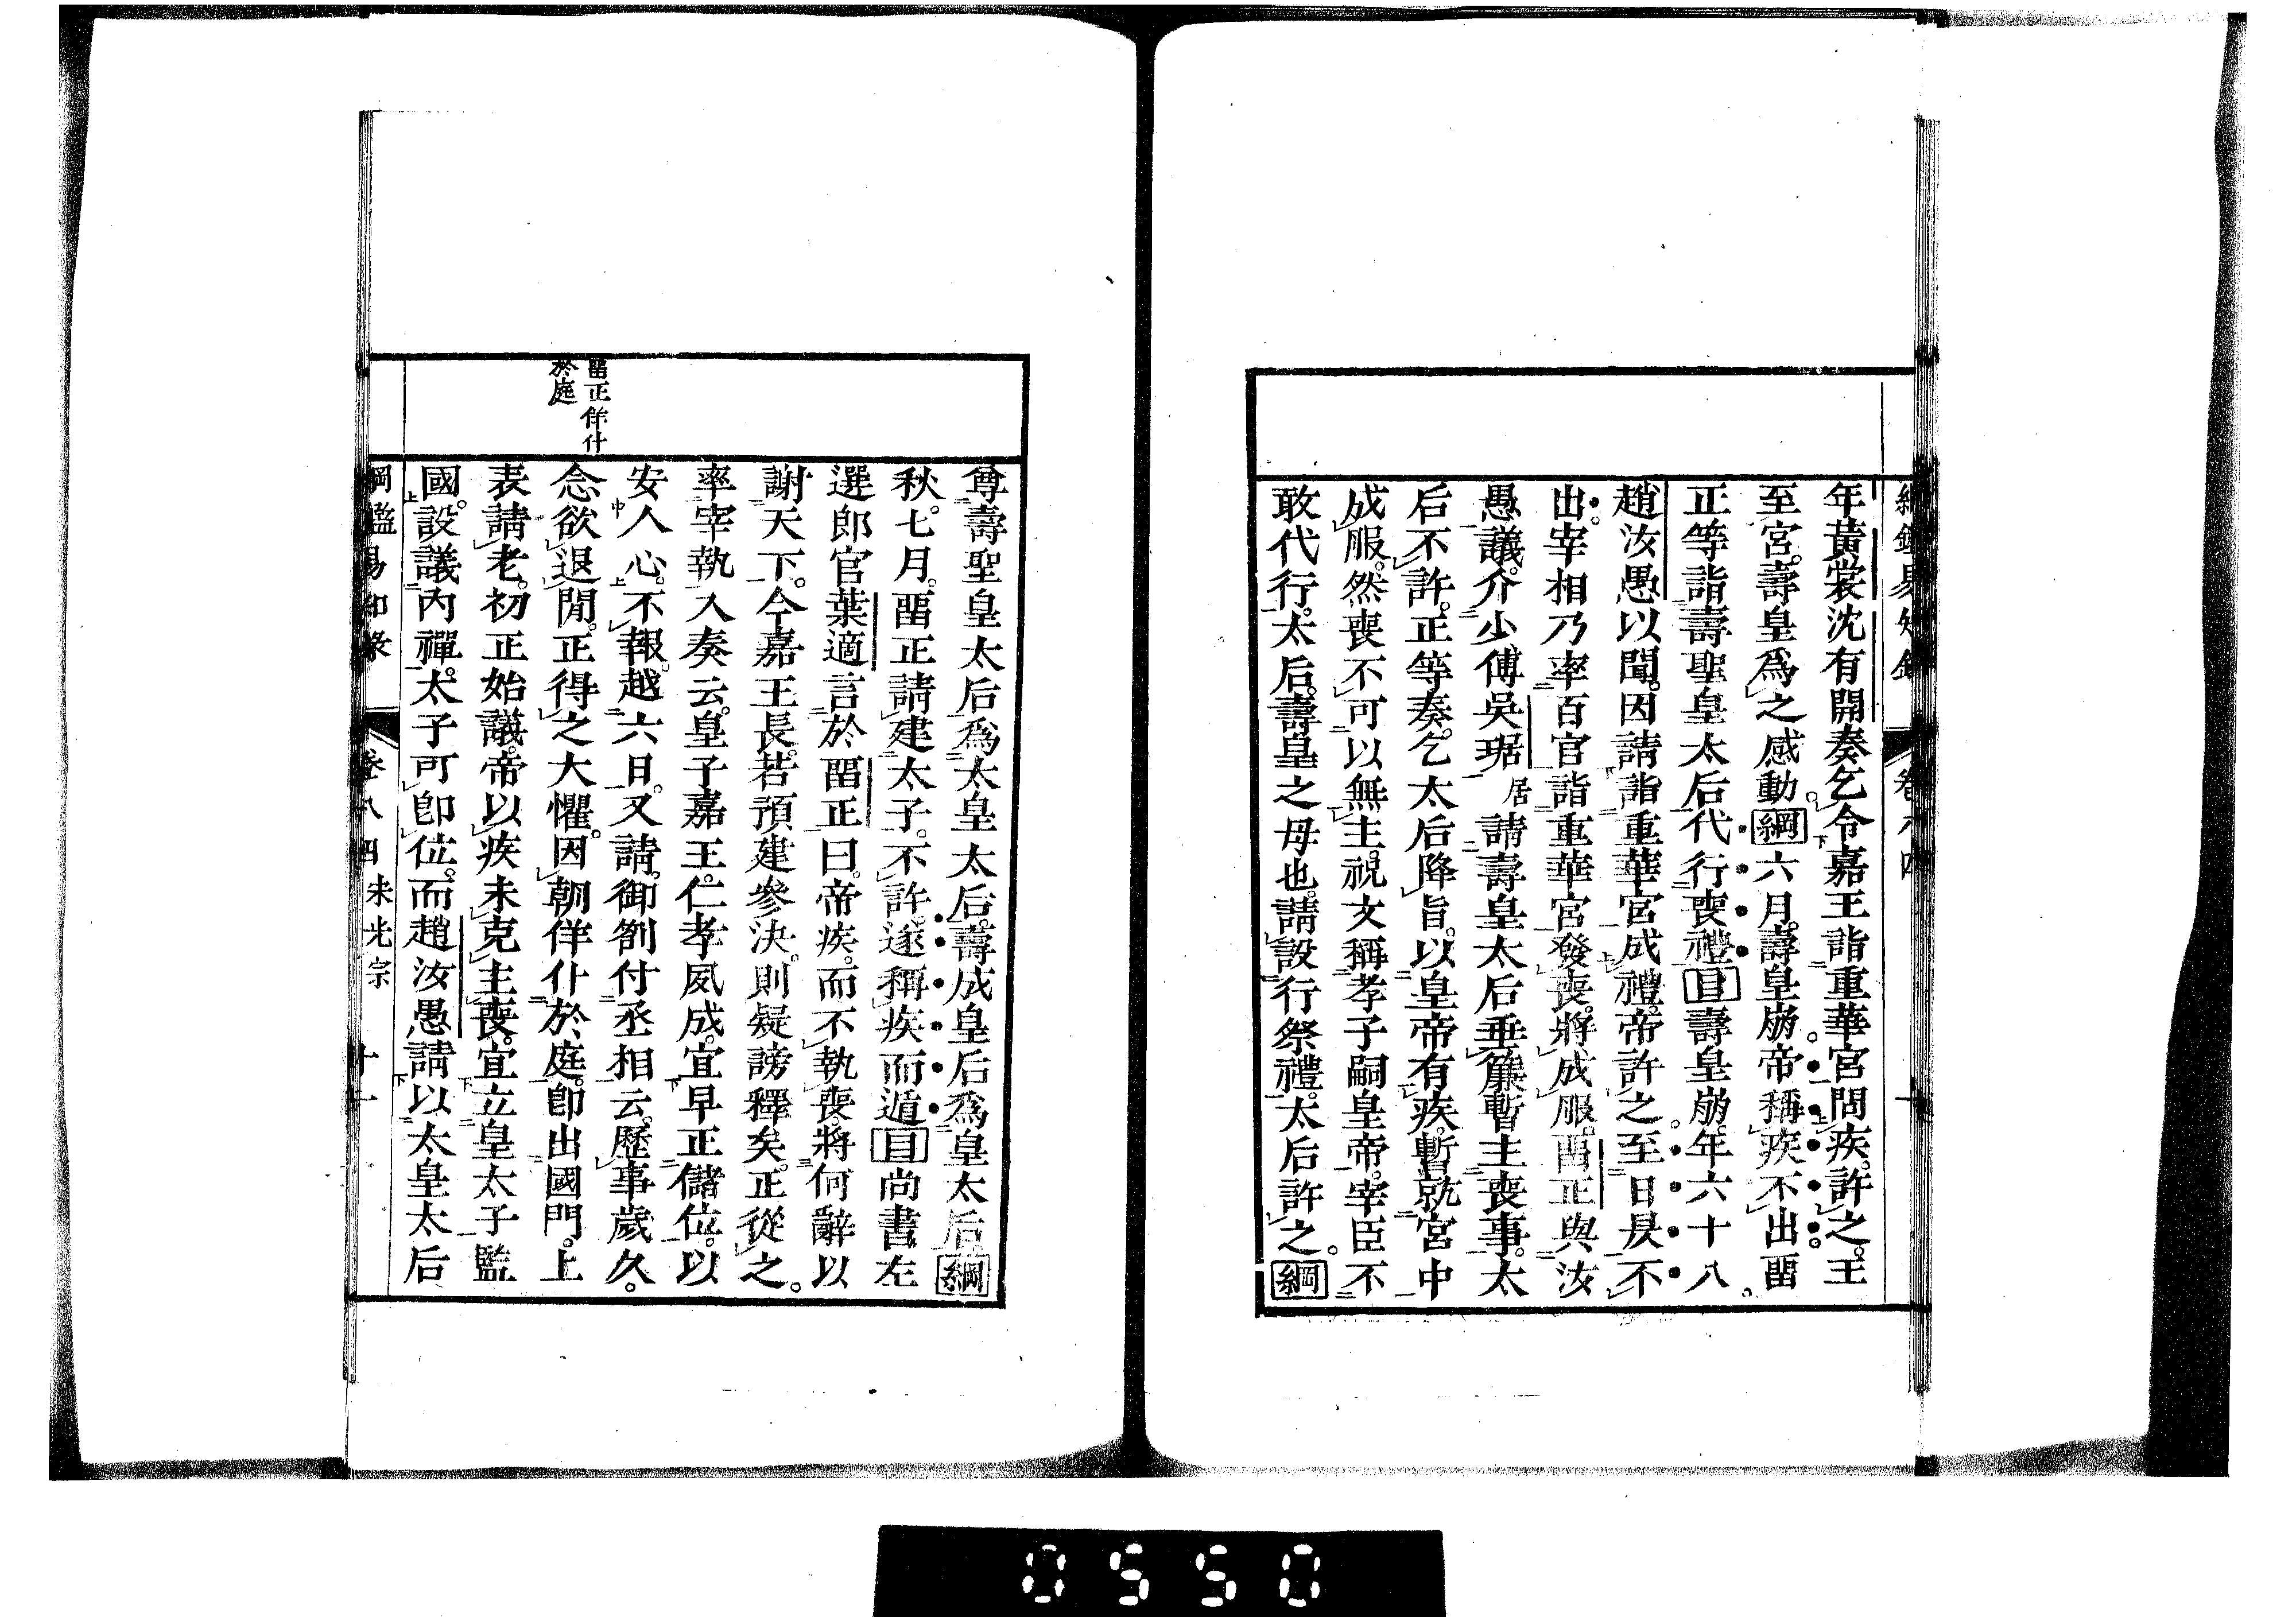 綱鑑易知錄 卷八四 十一
年黃裳沈有開奏乞令嘉王詣重華宮問疾許之王
至宮壽皇爲之感動。綱六月壽皇崩帝稱疾不出畱
正等詣壽聖皇太后代行喪禮目壽皇崩年六十八。
趙汝愚以聞因請詣重華宮成禮帝許之至日昃不
出宰相乃率百官詣重華宮發喪將成服畱正與汝
愚議介少傅吳琚居請壽皇太后垂簾暫主喪事太
后不許正等奏乞太后降旨以皇帝有疾暫就宮中
成服然喪不可以無主祝文稱孝子嗣皇帝宰臣不
敢代行太后壽皇之母也請設行祭禮太后許之。綱
尊壽聖皇太后爲太皇太后壽成皇后爲皇太后綱
秋七月畱正請建太子不許遂稱疾而遁目尚書左
選郎官葉適言於畱正曰帝疾而不執喪將何辭以
謝天下今嘉王長若預建參決則疑謗釋矣正從之。
率宰執入奏云皇子嘉王仁孝夙成宜早正儲位以
安人心不報越六日又請御劄付丞相云歷事歲久。
念欲退閒正得之大懼因朝佯仆於庭卽出國門上
表請老初正始議帝以疾未克主喪宜立皇太子監
國設議內禪太子可卽位而趙汝愚請以太皇太后
畱正佯仆
於庭
綱鑑易知錄 卷八四 宋光宗 十一
0550